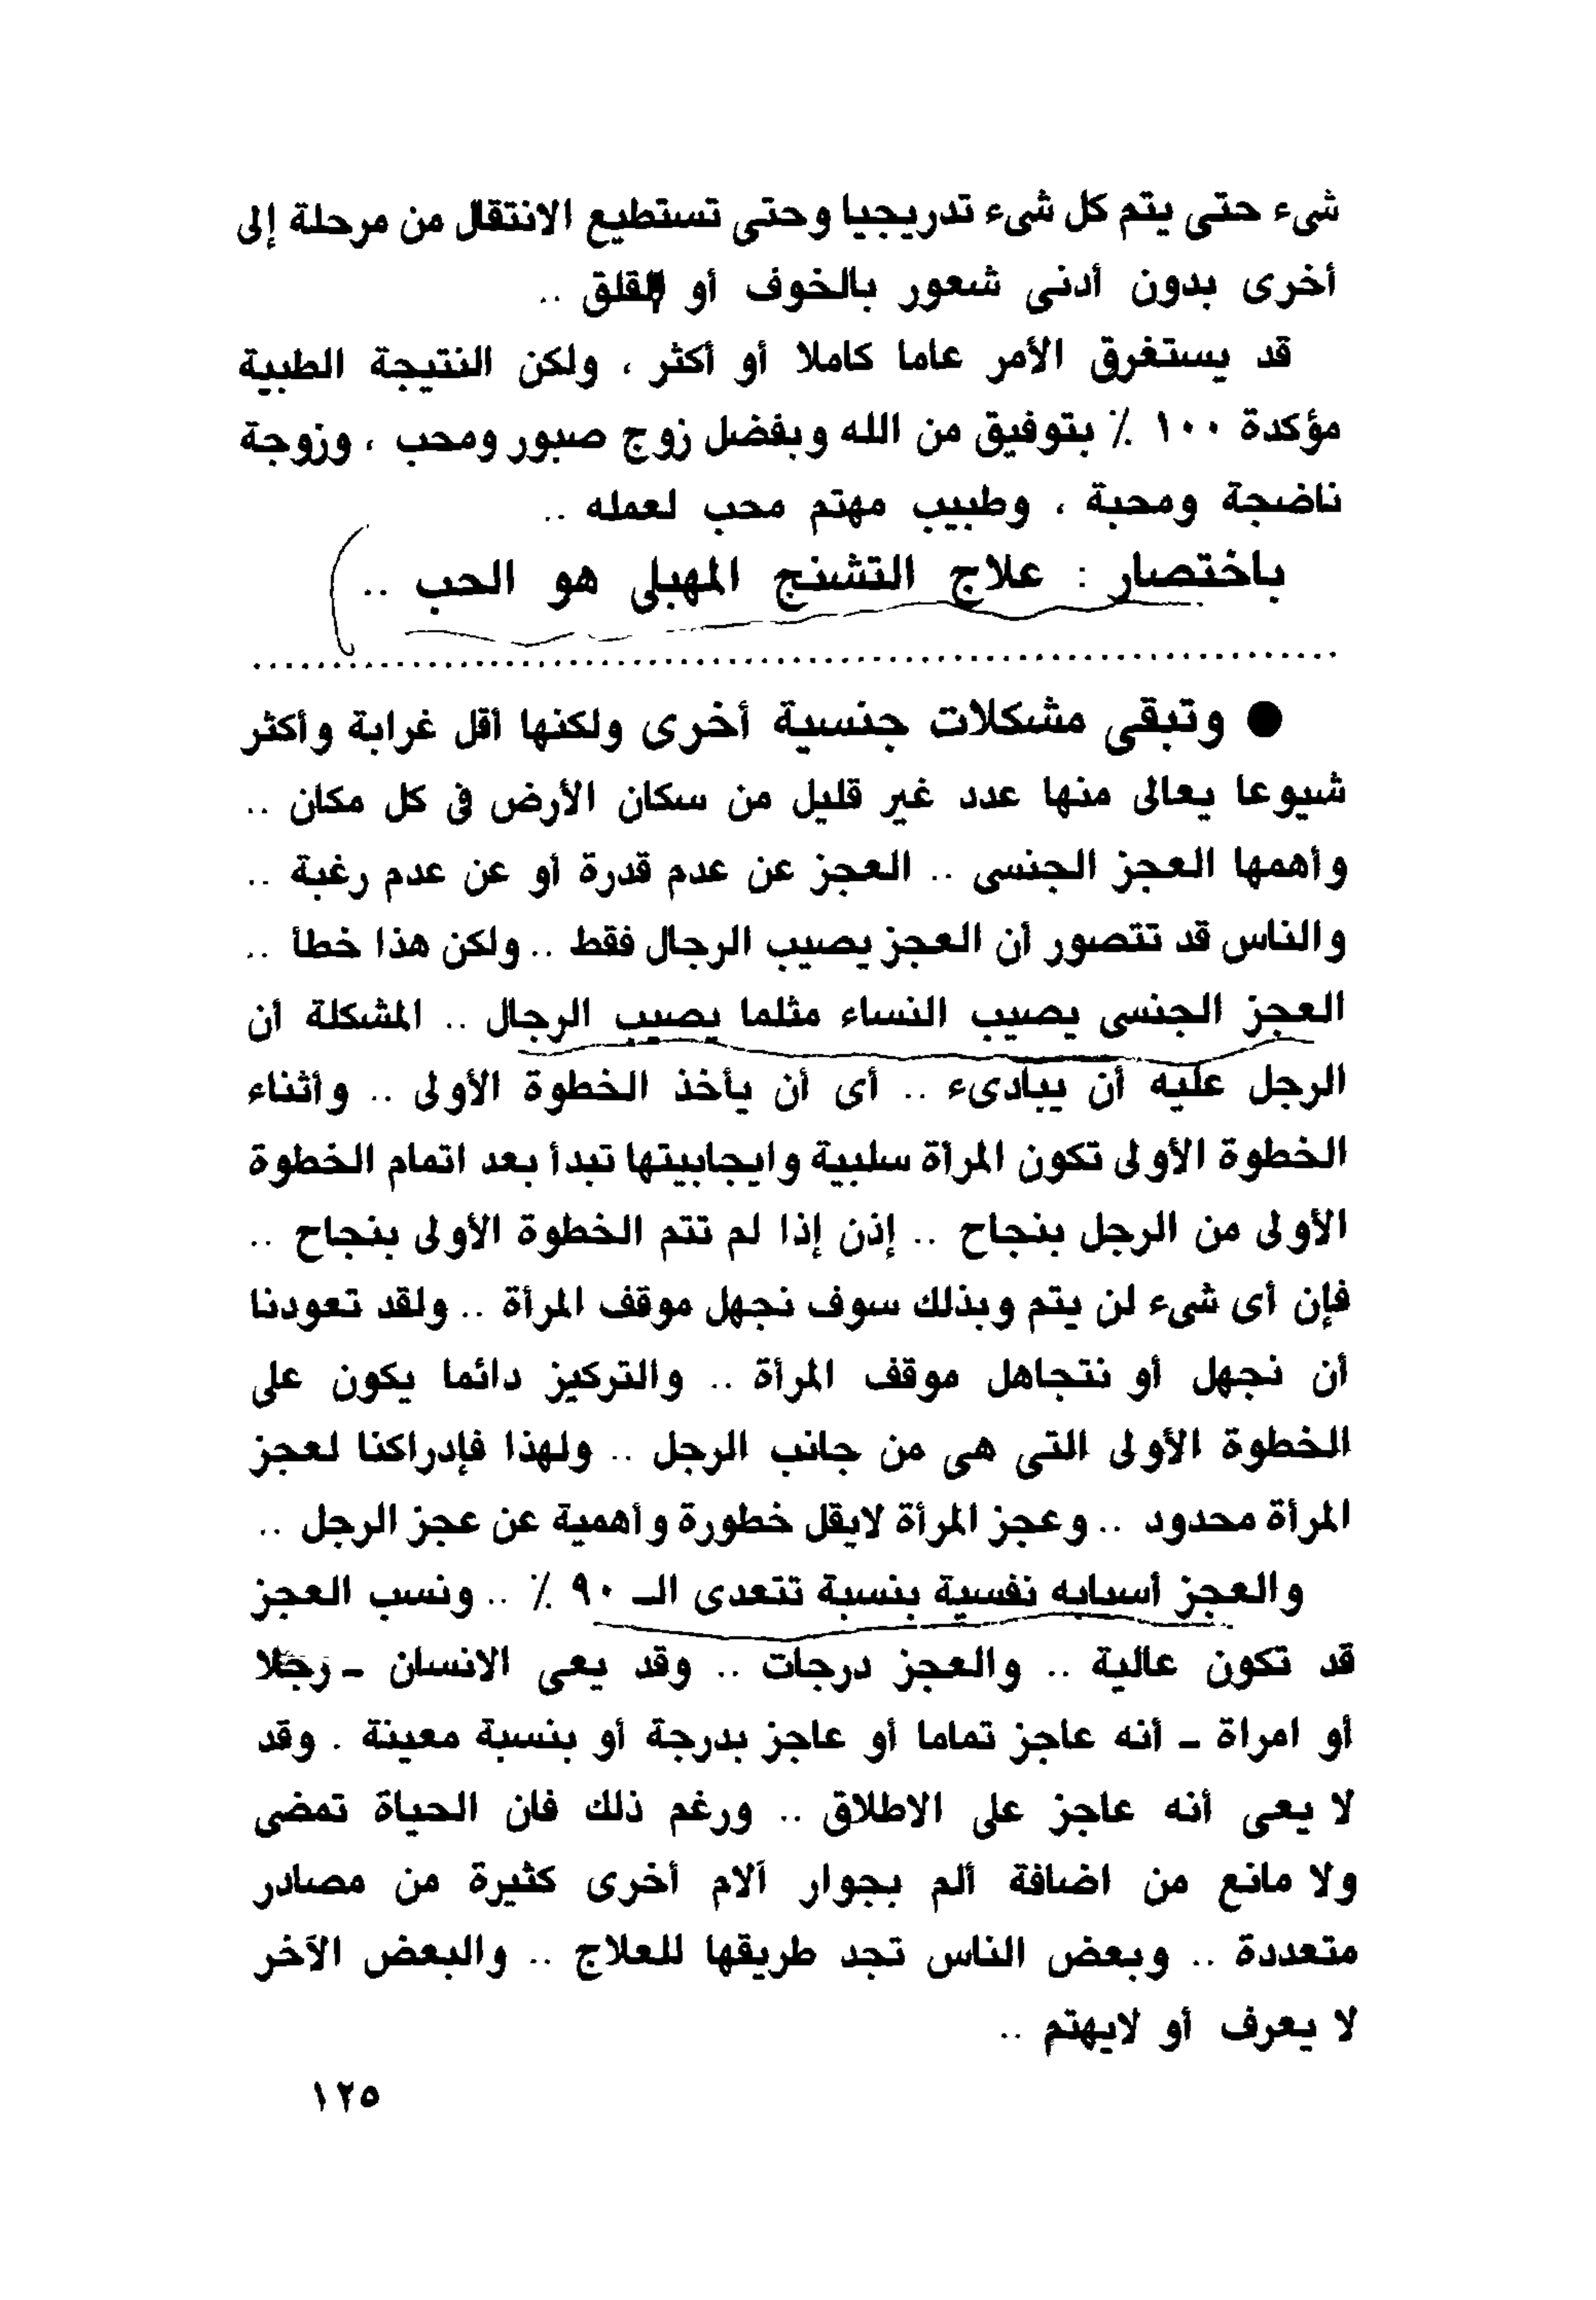 شىء حتى يتم كل شىء تدريجيا وحتى تستطيع الانتقال من مرحلة إلى
أخرى بدون أدنى شعور بالخوف أو القلق ..
قد يستغرق الأمر عاما كاملا أو أكثر ، ولكن النتيجة الطبية
مؤكدة ١٠٠ ٪ بتوفيق من الله وبفضل زوج صبور ومحب ، وزوجة
ناضجة ومحبة ، وطبيب مهتم محب لعمله ..
باختصار : علاج التشنج المهبلى هو الحب ..
..............................................................
● وتبقى مشكلات جنسية أخرى ولكنها أقل غرابة وأكثر
شيوعا يعالى منها عدد غير قليل من سكان الأرض فى كل مكان ..
وأهمها العجز الجنسى .. العجز عن عدم قدرة أو عن عدم رغبة ..
والناس قد تتصور أن العجز يصيب الرجال فقط .. ولكن هذا خطأ ..
العجز الجنسى يصيب النساء مثلما يصيب الرجال .. المشكلة أن
الرجل عليه أن يبادىء .. أى أن يأخذ الخطوة الأولى .. وأثناء
الخطوة الأولى تكون المرأة سلبية وايجابيتها تبدأ بعد اتمام الخطوة
الأولى من الرجل بنجاح .. إذن إذا لم تتم الخطوة الأولى بنجاح ..
فإن أى شىء لن يتم وبذلك سوف نجهل موقف المرأة .. ولقد تعودنا
أن نجهل أو نتجاهل موقف المرأة .. والتركيز دائما يكون على
الخطوة الأولى التى هى من جانب الرجل .. ولهذا فإدراكنا لعجز
المرأة محدود .. وعجز المرأة لايقل خطورة وأهمية عن عجز الرجل ..
والعجز أسبابه نفسية بنسبة تتعدى الـ ٩٠ ٪ .. ونسب العجز
قد تكون عالية .. والعجز درجات .. وقد يعى الانسان ـ رجلا
أو امراة ـ أنه عاجز تماما أو عاجز بدرجة أو بنسبة معينة . وقد
لا يعى أنه عاجز على الاطلاق .. ورغم ذلك فان الحياة تمضى
ولا مانع من اضافة ألم بجوار آلام أخرى كثيرة من مصادر
متعددة .. وبعض الناس تجد طريقها للعلاج .. والبعض الآخر
لا يعرف أو لايهتم ..
١٢٥